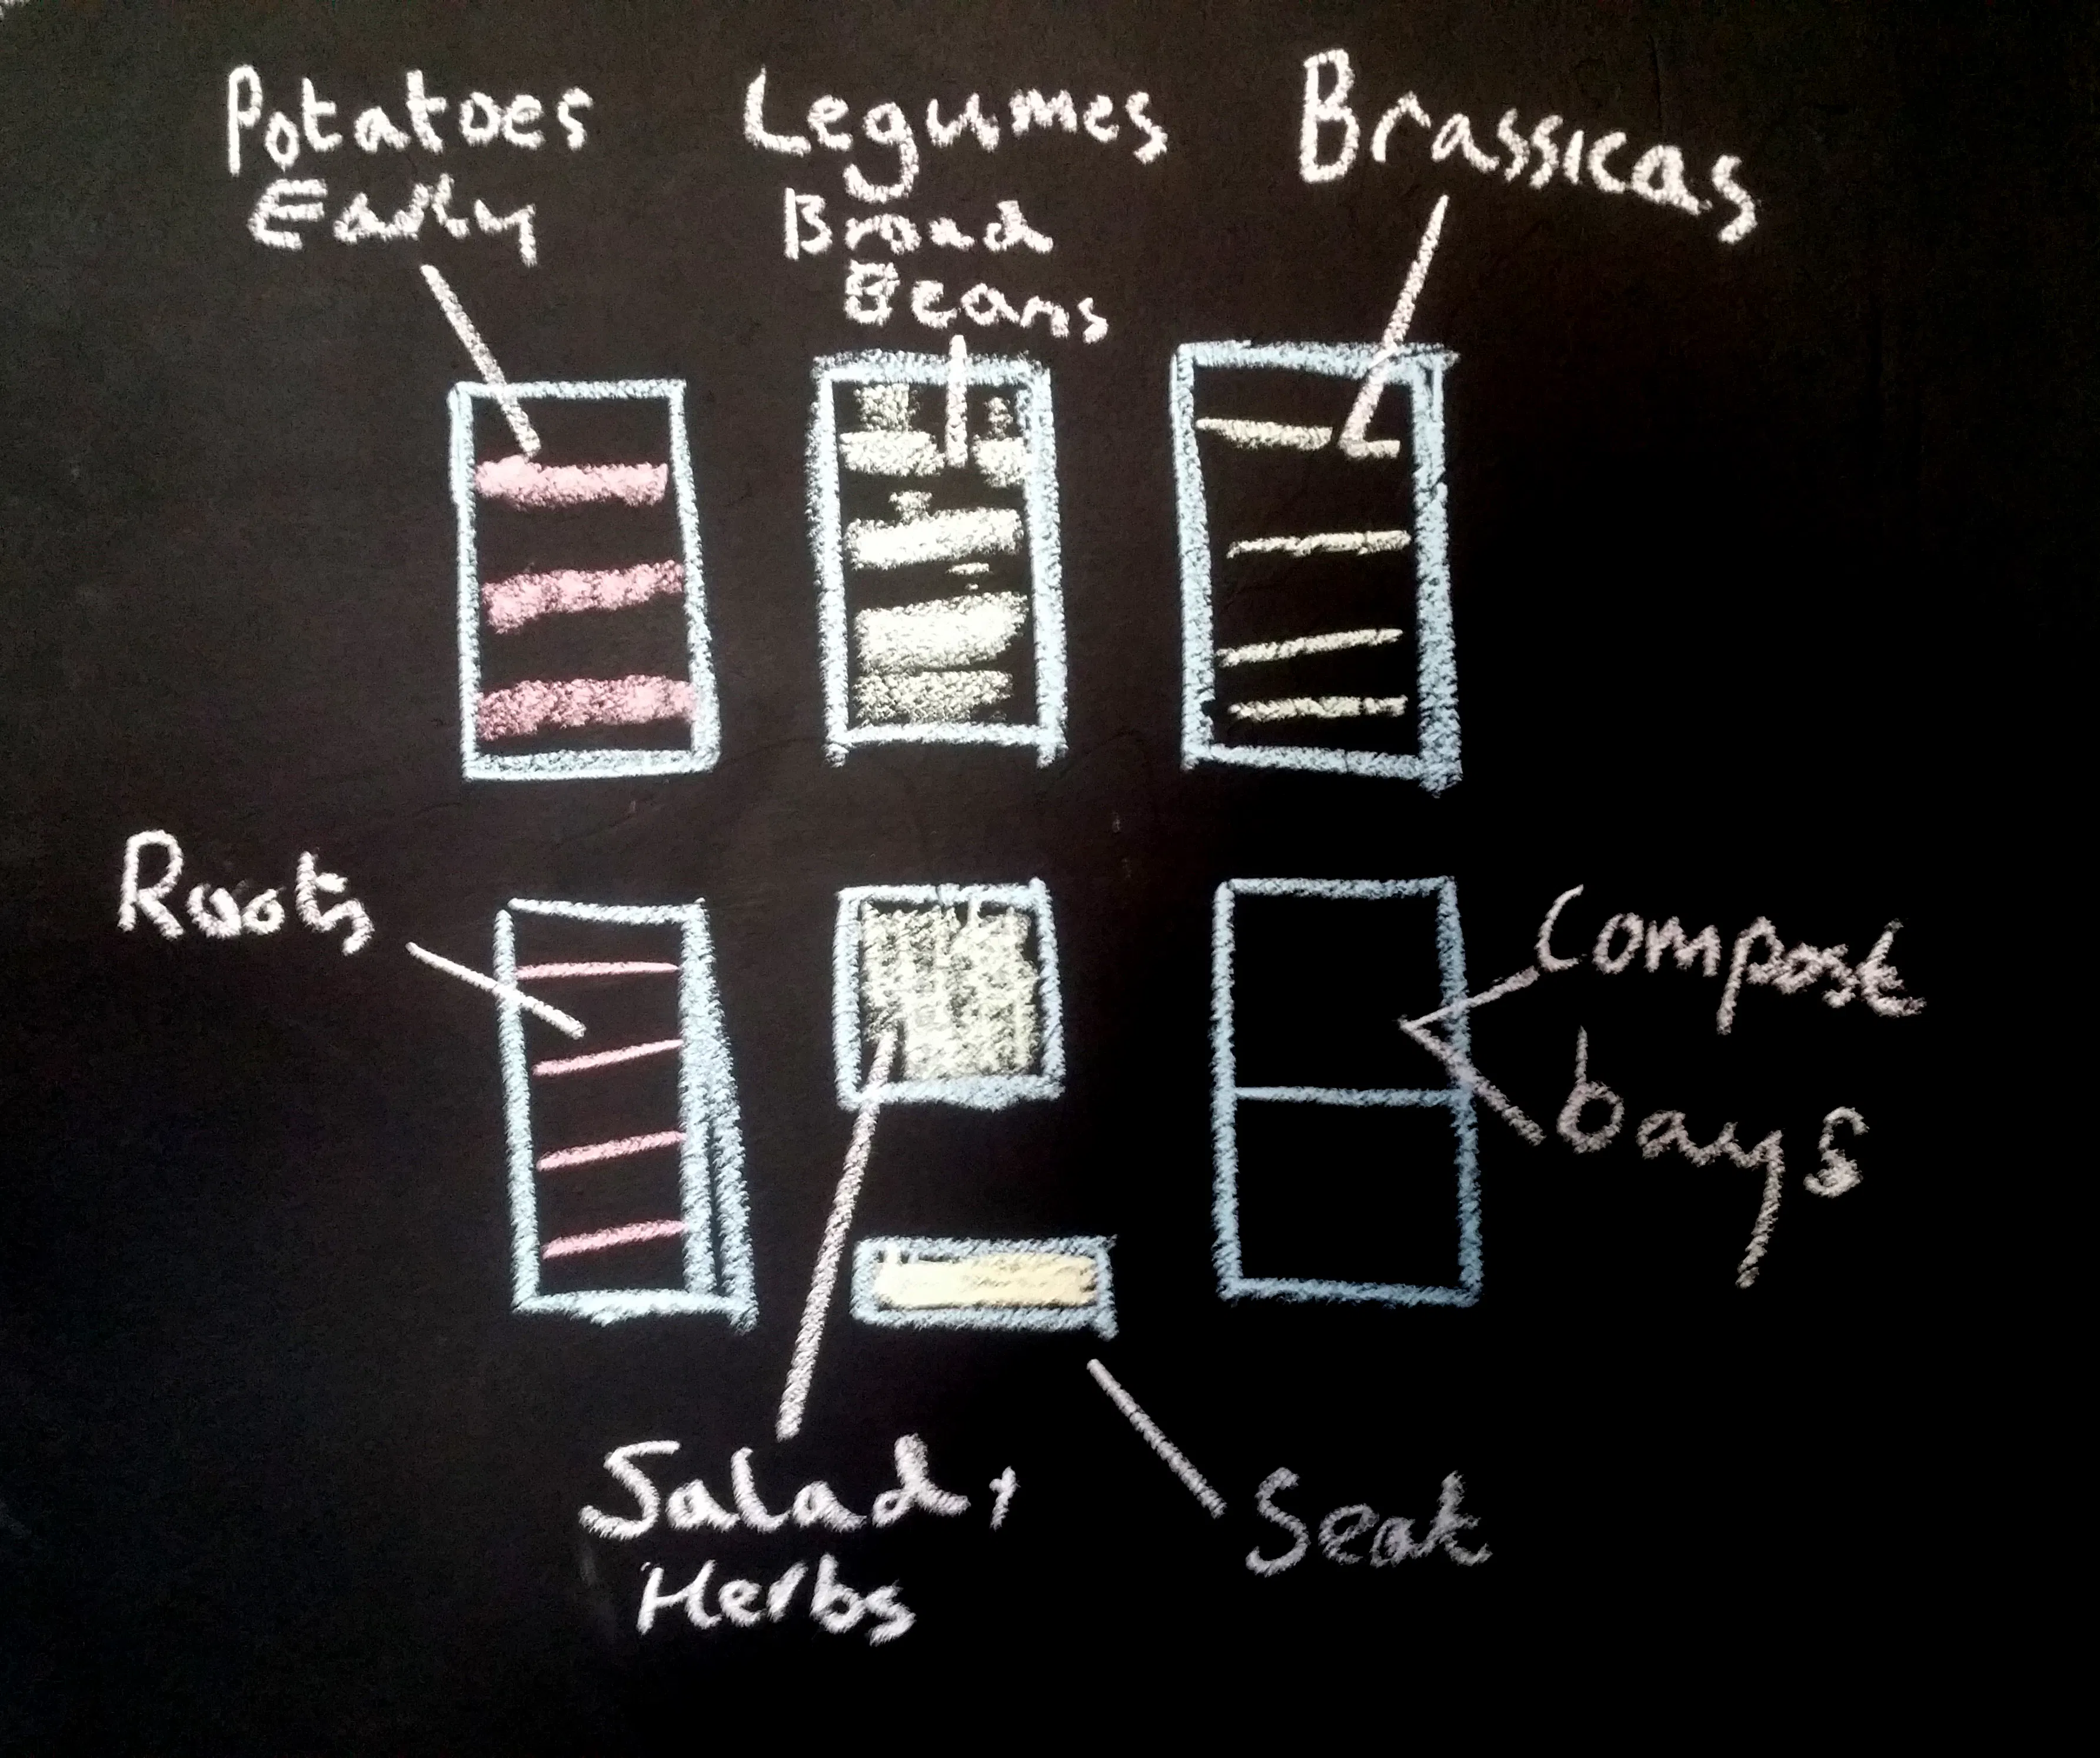 Potatoes
Early
Legumes
Broad
Beans
Brassicas
Roots
Compost
bays
Salad,
Herbs
Seat